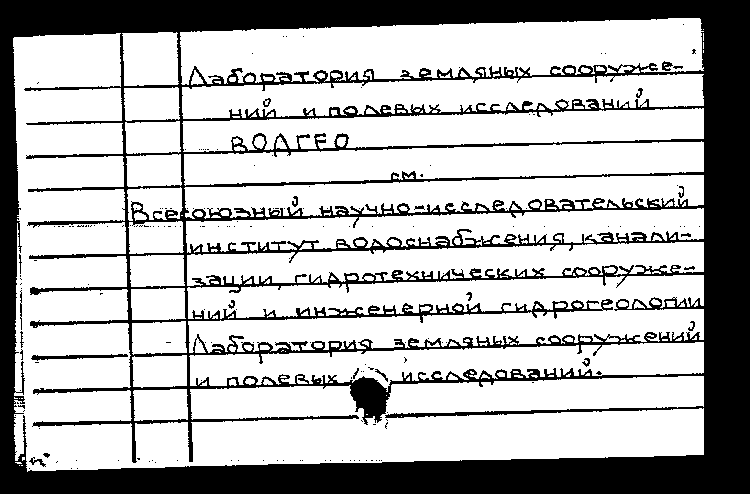 Лаборатория земляных сооруже-
ний и полевых исследований
ВОДГЕО
см.
Всесоюзный научно-исследовательский
институт водоснабжения, канали-
зации, гидротехнических сооруже-
ний и инженерной гидрогеологии
Лаборатория земляных сооружений
и полевых исследований.